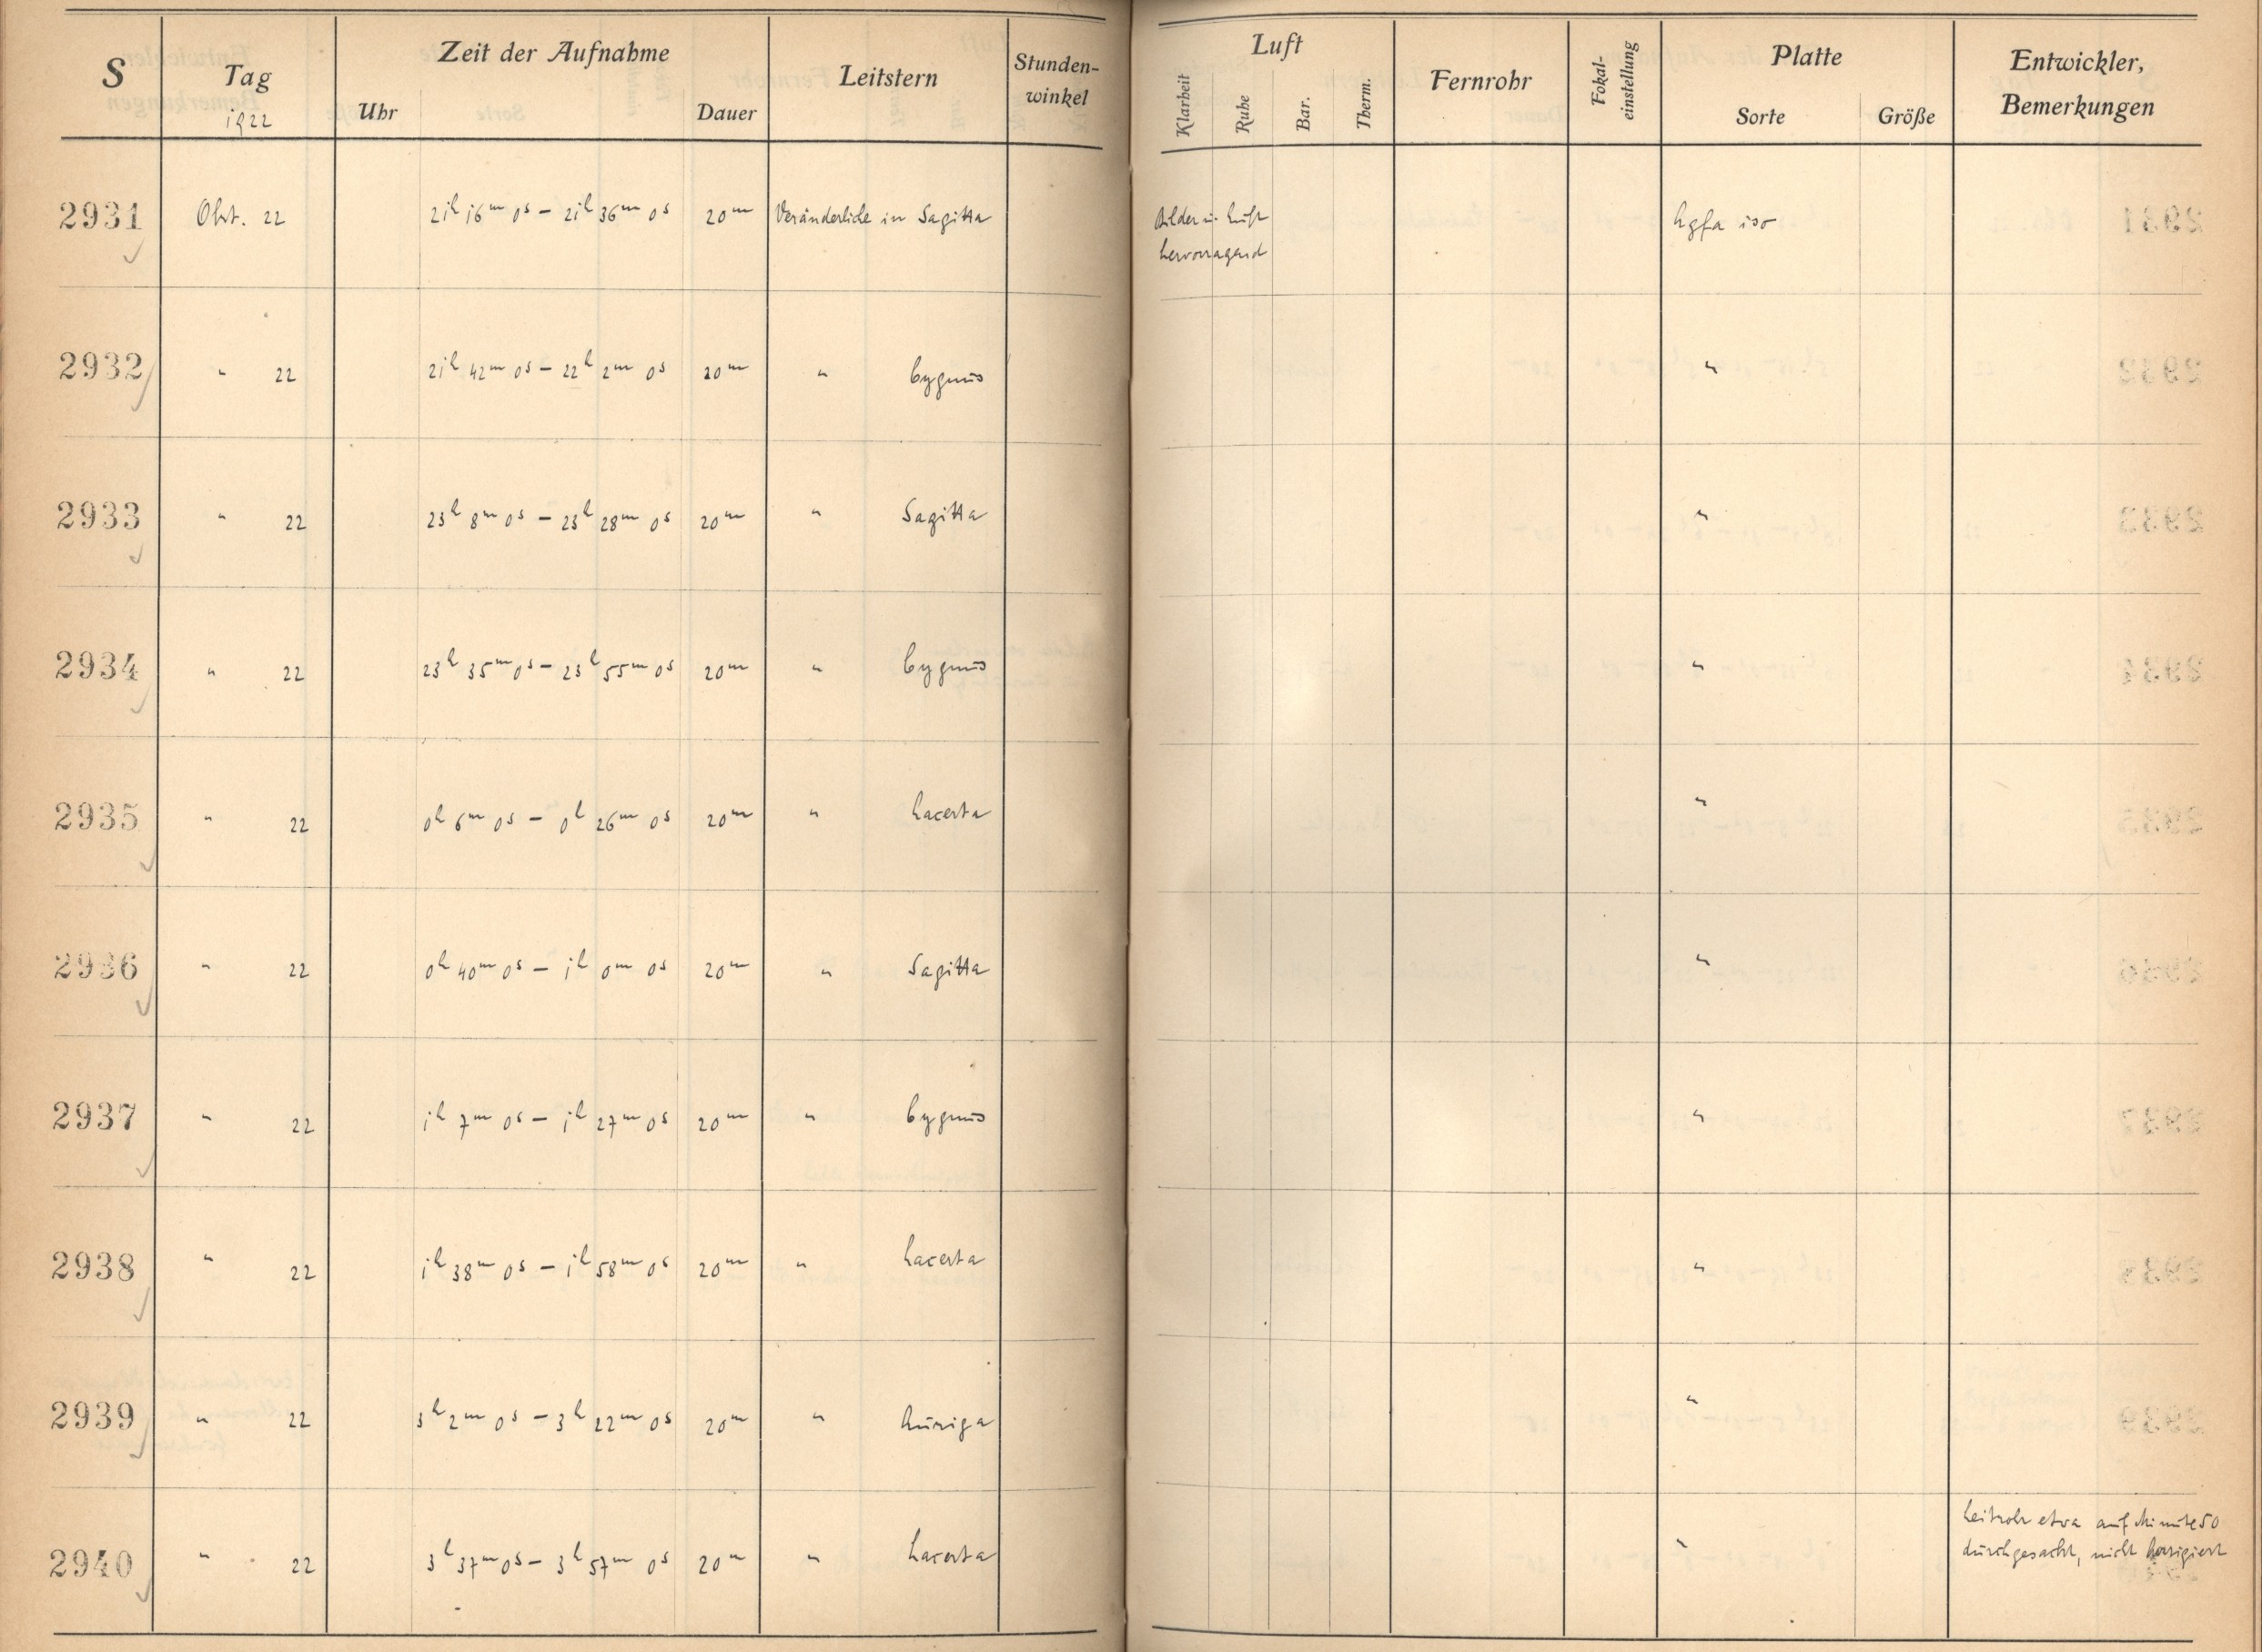 S Tag 1922 Zeit der Aufnahme Uhr Dauer Leitstern Stunden-winkel Luft Klarheit Ruhe Bar. Therm. Fernrohr Fokal-einstellung Platte Sorte Größe Entwickler, Bemerkungen
2931 Okt. 22 21h 16m 0s – 21h 36m 0s 20m Veränderliche in Sagitta Bilder u. Luft hervorragend Agfa iso
2932 " 22 21h 42m 0s – 22h 2m 0s 20m " Cygnus "
2933 " 22 23h 8m 0s – 23h 28m 0s 20m " Sagitta "
2934 " 22 23h 35m 0s – 23h 55m 0s 20m " Cygnus "
2935 " 22 0h 6m 0s – 0h 26m 0s 20m " Lacerta "
2936 " 22 0h 40m 0s – 1h 0m 0s 20m " Sagitta "
2937 " 22 1h 7m 0s – 1h 27m 0s 20m " Cygnus "
2938 " 22 1h 38m 0s – 1h 58m 0s 20m " Lacerta "
2939 " 22 3h 2m 0s – 3h 22m 0s 20m " Auriga "
2940 " 22 3h 37m 0s – 3h 57m 0s 20m " Lacerta " Leitrohr etwa auf Minute 50 durchgesackt, nicht korrigiert